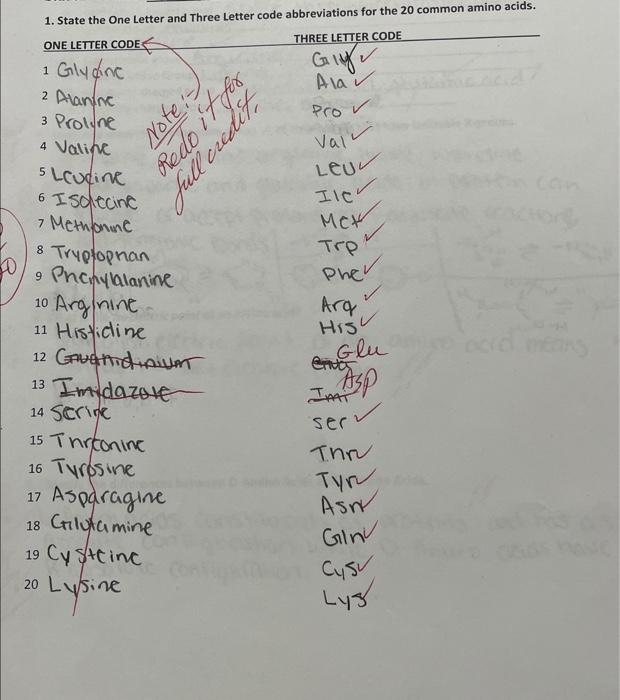 1. State the One Letter and Three Letter code abbreviations for the 20 common amino acids.
ONE LETTER CODE THREE LETTER CODE
1 Glycine Gly
2 Alanine Ala
3 Proline Pro
4 Valine Val
5 Leucine Leu
6 Isolecine Ile
7 Methionine Met
8 Tryptophan Trp
9 Phenylalanine Phe
10 Arginine Arg
11 Histidine His
12 Guanidinium Glu
13 Imidazole Imi Asp
14 Serine ser
15 Threonine Thr
16 Tyrosine Tyr
17 Asparagine Asn
18 Glutamine Gln
19 Cysteine Cys
20 Lysine Lys
Note :-)
Redo it for
full credit.